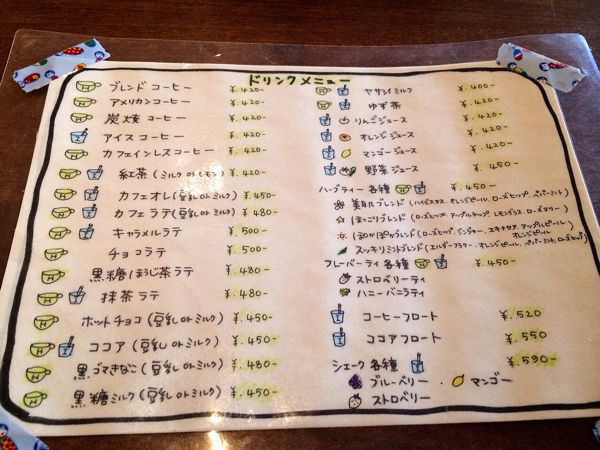 ドリンクメニュー
H ブレンド コーヒー ¥.420-
H アメリカンコーヒー ¥.420-
H 炭火焼 コーヒー ¥.420-
I アイスコーヒー ¥.420-
H カフェインレスコーヒー ¥.420-
H I 紅茶 (ミルク or レモン) ¥.420-
H I カフェオレ(豆乳 or ミルク) ¥.450-
H I カフェラテ(豆乳 or ミルク) ¥.480-
H I キャラメルラテ ¥.500-
H チョコラテ ¥.500-
H 黒糖ほうじ茶ラテ ¥.480-
H I 抹茶ラテ ¥.480-
H ホットチョコ (豆乳 or ミルク) ¥.450-
H I ココア (豆乳 or ミルク) ¥.450-
H 黒ゴマきなこ (豆乳 or ミルク) ¥.480-
H 黒糖ミルク (豆乳 or ミルク) ¥.450-
H I ヤサシイミルク ¥.400-
H I ゆず茶 ¥.420-
I りんごジュース ¥.420-
I オレンジジュース ¥.420-
I マンゴージュース ¥.420-
I 野菜ジュース ¥.450-
ハーブティー 各種 H I ¥.450-
美肌ブレンド (ハイビスカス、オレンジピール、ローズヒップ、ペパーミント)
ほっこりブレンド (ローズヒップ、アップルチップ、レモングラス、ローズマリー)
ぽかぽかブレンド (ローズヒップ、ジンジャー、エキナセア、アップルピール、オレンジピール)
スッキリミントブレンド (エルダーフラワー、オレンジピール、ペパーミント、ローズヒップ)
フレーバーティ 各種 H I ¥.450-
ストロベリーティ
ハニーバニラティ
I コーヒーフロート ¥.520
I ココアフロート ¥.550
シェーク 各種 I ¥.590-
ブルーベリー ・ マンゴー
ストロベリー